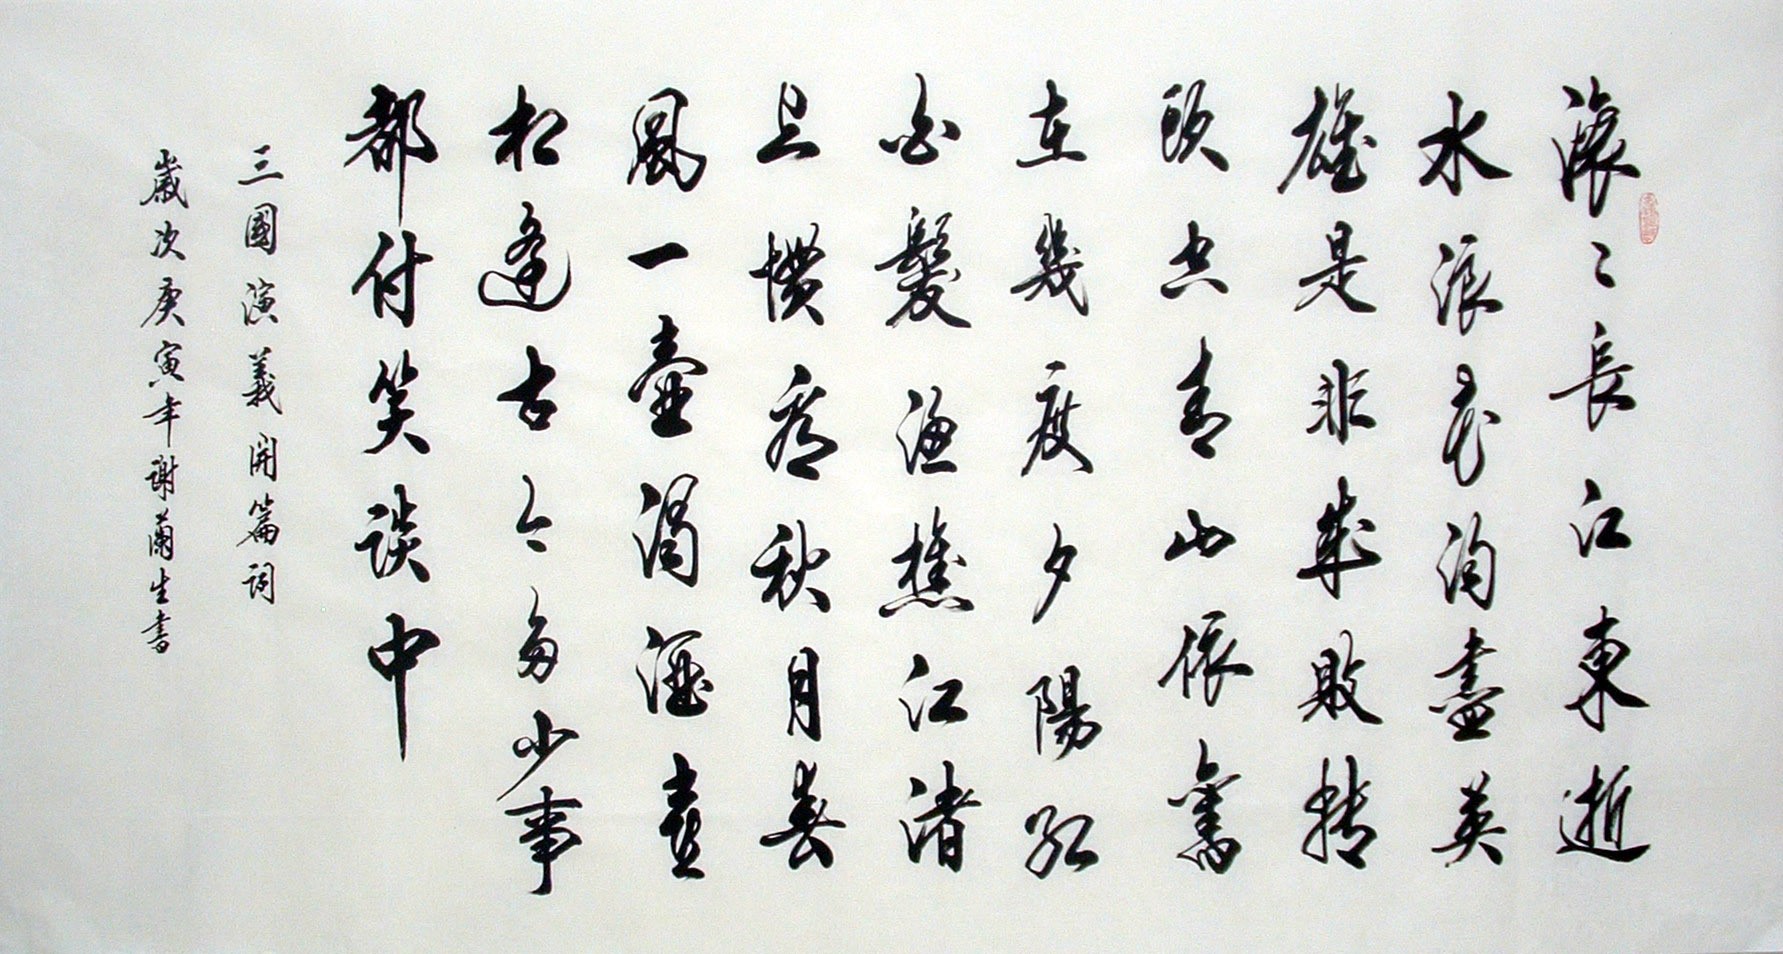 滚〻長江東逝
水浪花淘盡英
雄是非成敗轉
頭空青山依舊
在幾度夕陽紅
白髮漁樵江渚
上慣看秋月春
風一壺濁酒喜
相逢古今多少事
都付笑談中
三國演義開篇詞
歲次庚寅年謝蘭生書